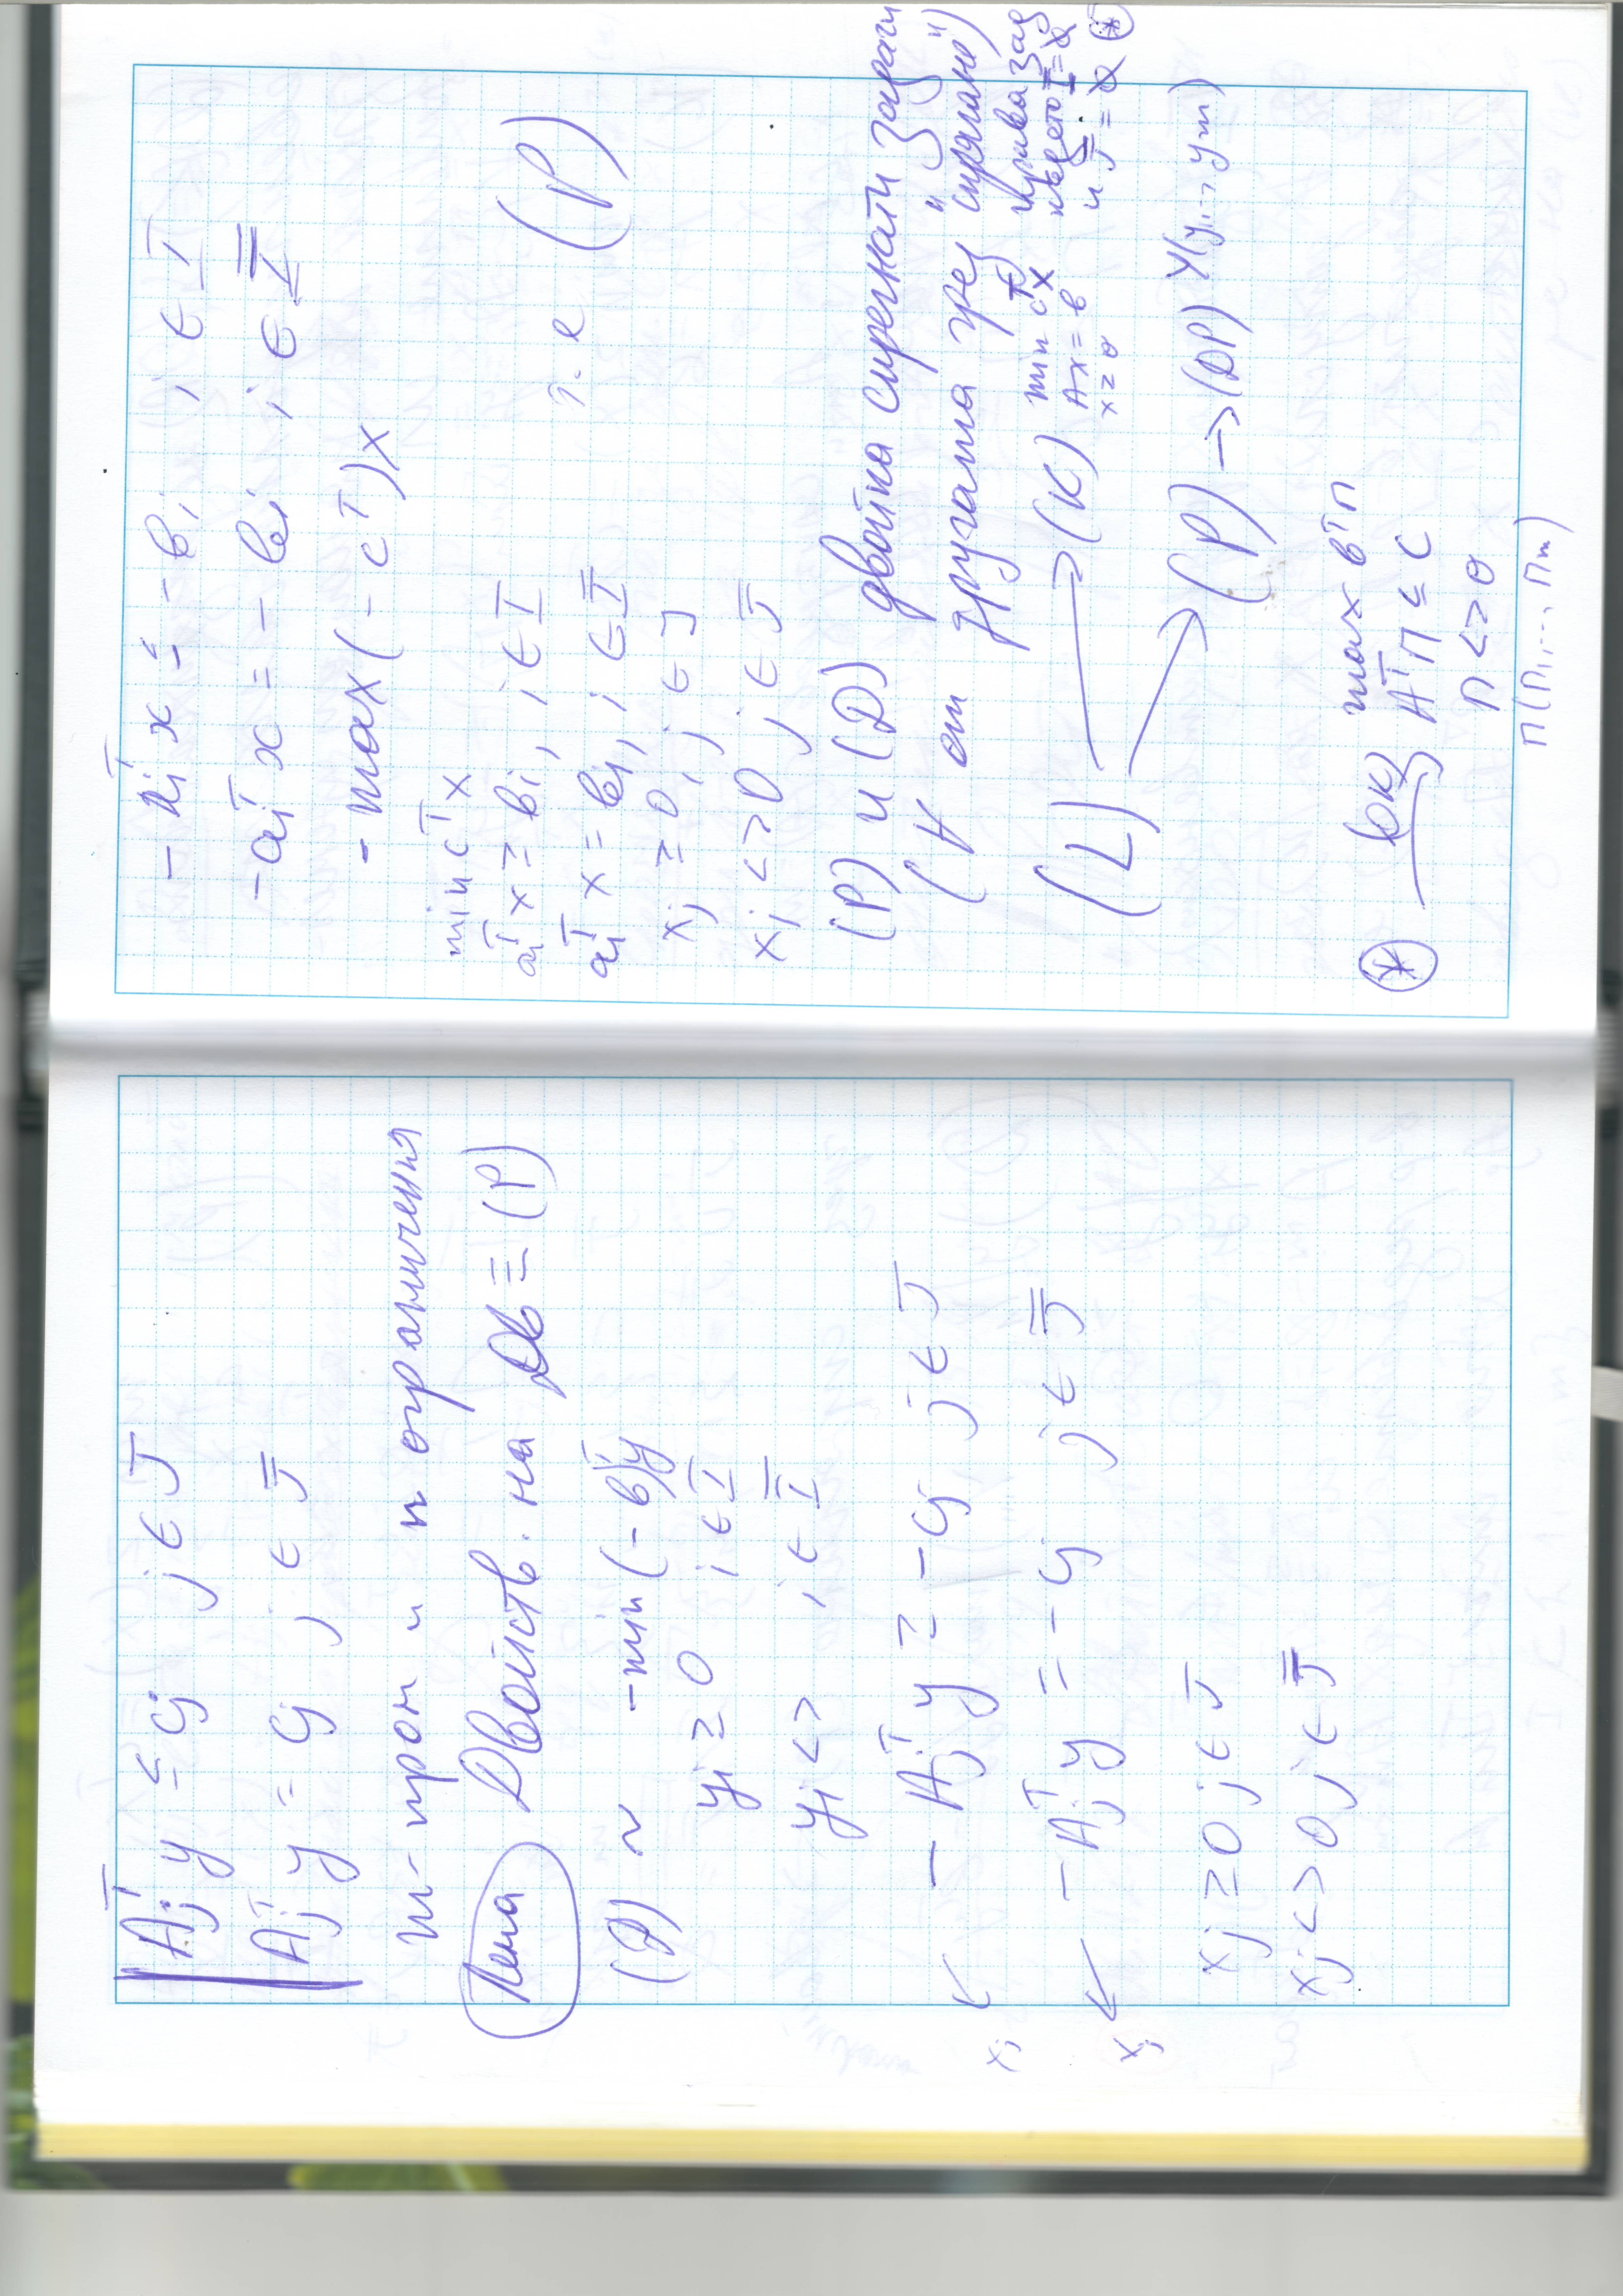 A_j^T y ≤ c_j j ∈ J
A_j^T y = c_j , j ∈ J̿
m - пром. и n ограничения
Лема Двойств. на D ≡ (P)
(D) ~ -min (-b)^T y
y_i ≥ 0 i ∈ I
y_i <> , i ∈ I̿
← - A_j^T y ≥ -c_j j ∈ J
x_j
← - A_j^T y = -c_j j ∈ J̿
x_j
x_j ≥ 0 j ∈ J
x_j <> 0, j ∈ J̿
- a_i^T x ≤ -b_i , i ∈ I
- a_i^T x = -b_i , i ∈ I̿
- max (-c^T) x
min c^T x
a_i^T x ≥ b_i , i ∈ I
a_i^T x = b_i , i ∈ I̿ т. е (P)
x_j ≥ 0, j ∈ J
x_j <> 0 j ∈ J̿
(P) и (D) двойка спрегнати задачи
(∀ от другата чрез "спрягане")
(L) → (K) min c^T x
Ax = b
x ≥ θ
и J̿ = Ø (*)
→ (P) → (DP) y(y_1, ... y_m)
(*) (DK) max b^T π
A^T π ≤ c
π <> θ
π(π_1, ..., π_m)